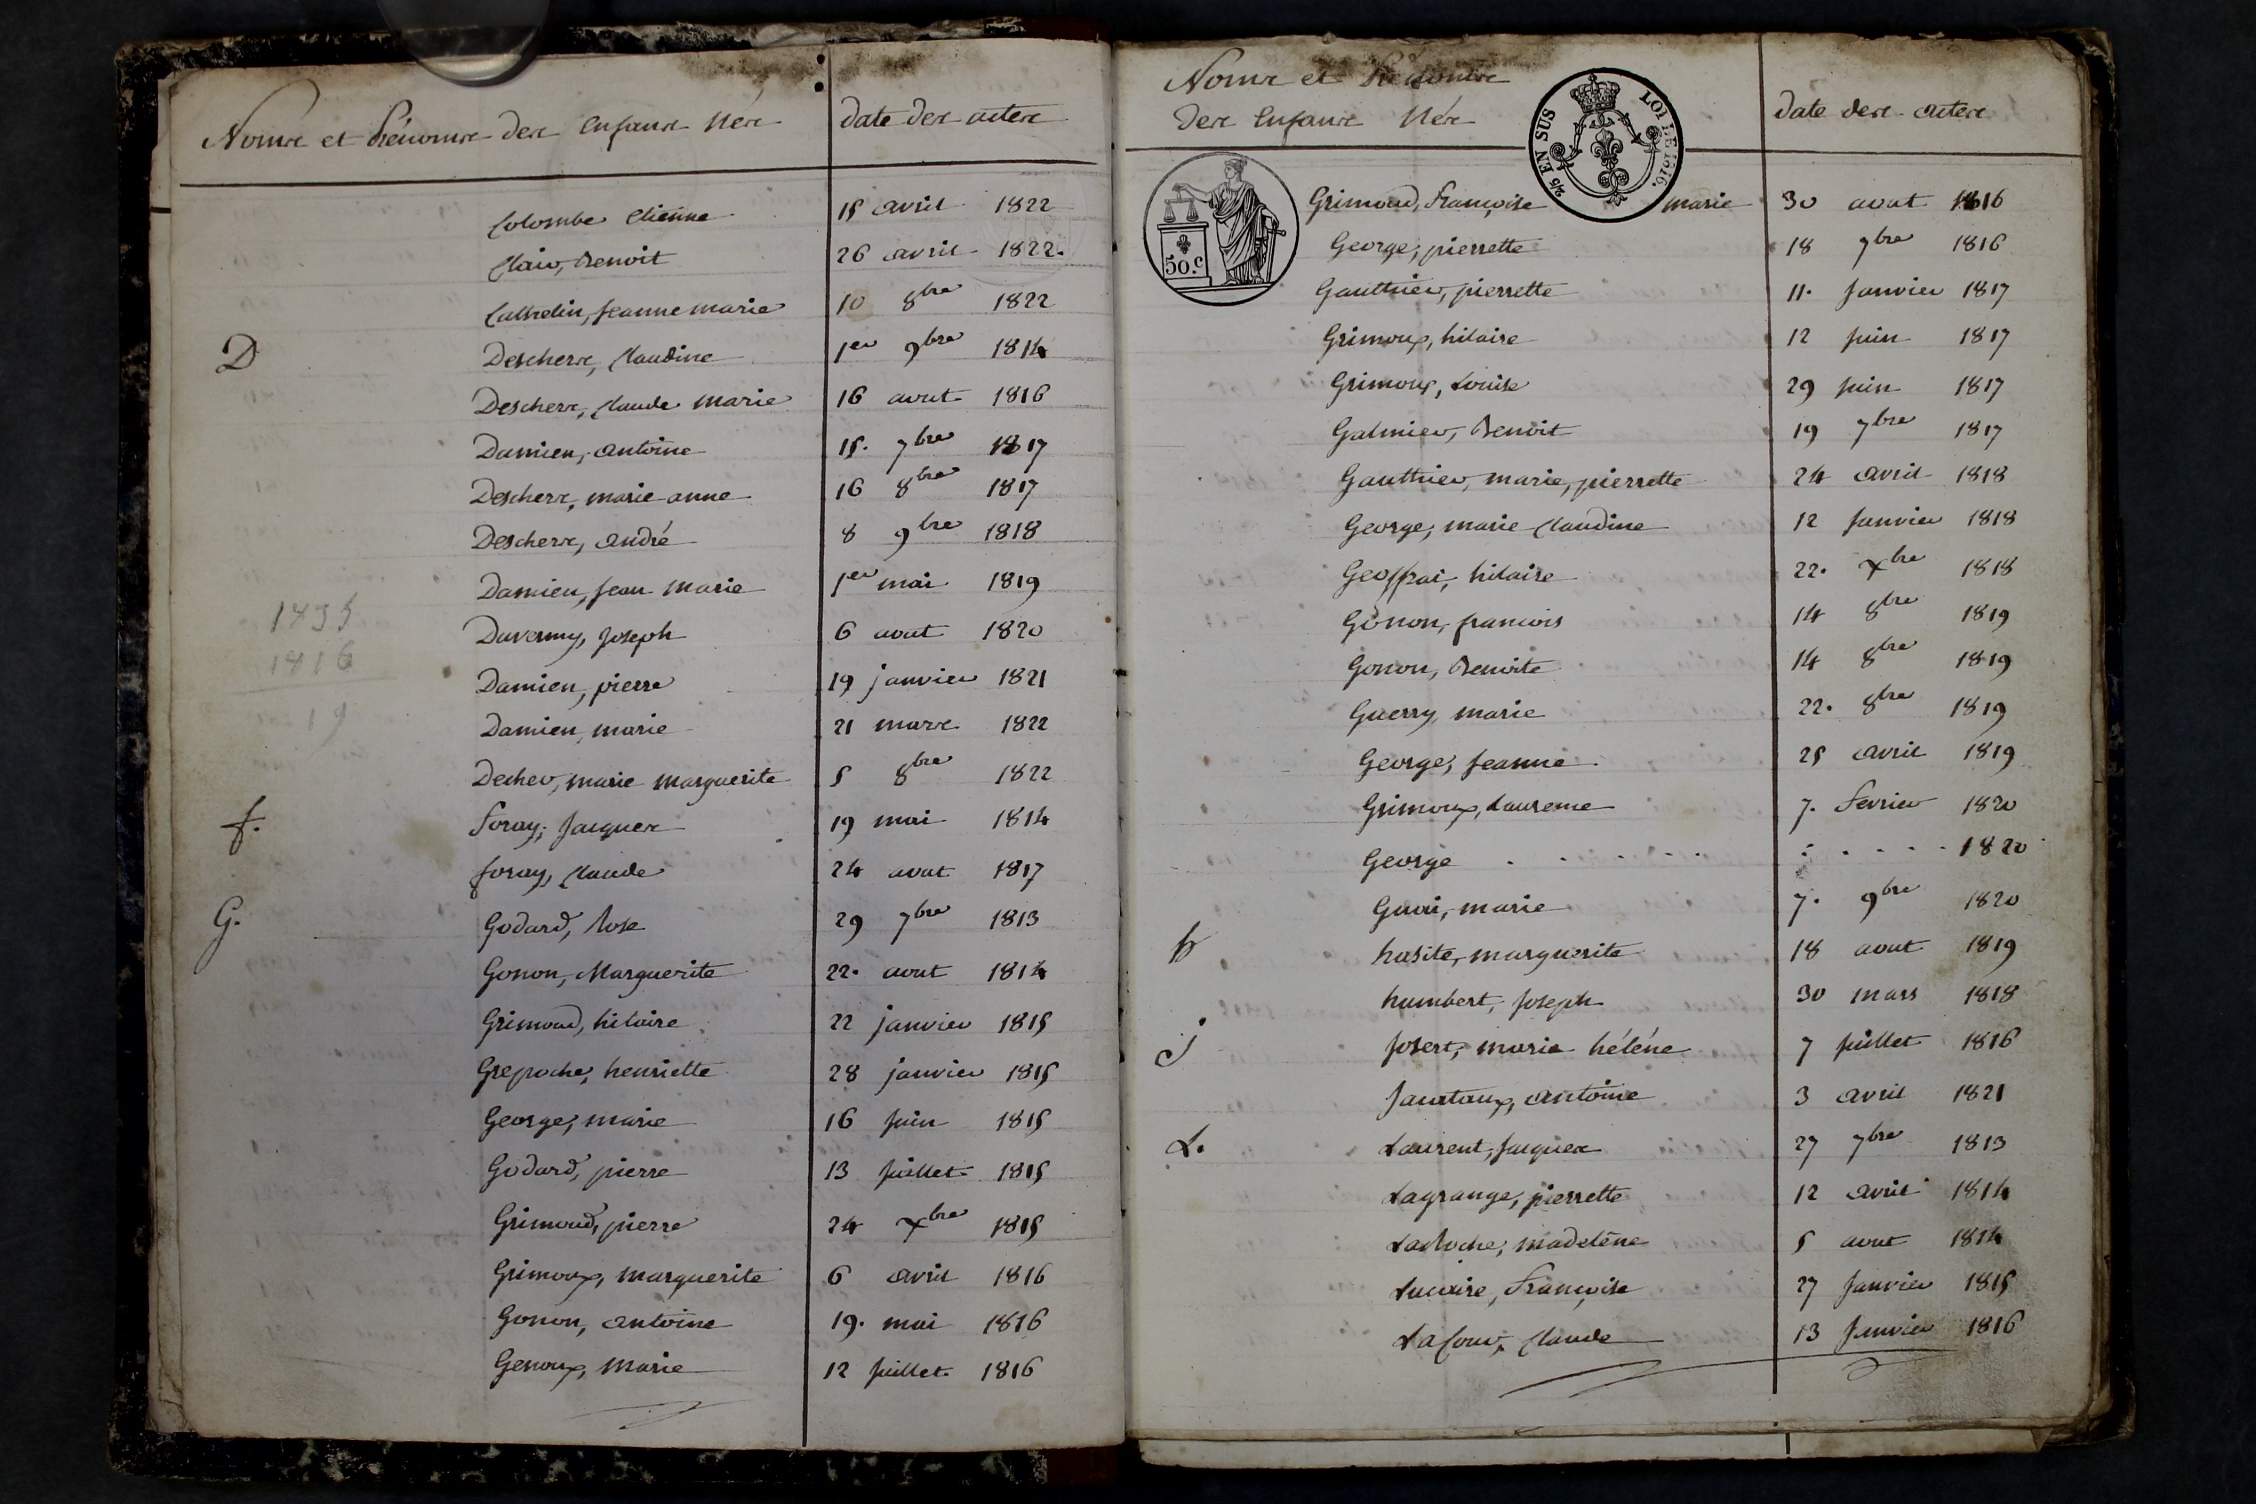 Noms et Prénoms des Enfans Nés
date des actes
Colombe Etienne 15 avril 1822
Clair, Benoit 26 avril 1822.
Cathelin, Jeanne marie 10 8bre 1822
D
Deschers, Claudine 1er 9bre 1814
Deschers, Claude marie 16 aout 1816
Damien, antoine 15. 7bre 1817
Deschers, marie anne 16 8bre 1817
Deschers, andré 8 9bre 1818
Damien, Jean marie 1er mai 1819
Duvernay, Joseph 6 aout 1820
Damien, pierre 19 janvier 1821
Damien, marie 21 mars 1822
Decher, marie marguerite 5 8bre 1822
f.
foray, Jacques 19 mai 1814
foray, Claude 24 aout 1817
G.
Godard, Rose 29 7bre 1813
Gonon, Marguerite 22. aout 1814
Grimoud, hilaire 22 janvier 1815
Grepoche, henriette 28 janvier 1815
George, marie 16 Juin 1815
Godard, pierre 13 Juillet 1815
Grimoud, pierre 24 Xbre 1815
Grimoux, marguerite 6 avril 1816
Gonon, antoine 19. mai 1816
Genoux, marie 12 Juillet 1816
1816
19
Noms et Prénoms
des Enfans Nés
date des actes
2/5 EN SUS LOI DE 1816.
50.c
Grimoud, Françoise marie 30 aout 1816
George, pierrette 18 7bre 1816
Gauthier, pierrette 11. Janvier 1817
Grimoux, hilaire 12 Juin 1817
Grimoux, Louise 29 Juin 1817
Galmier, Benoit 19 7bre 1817
Gauthier, marie, pierrette 24 avril 1818
George, marie Claudine 12 Janvier 1818
Geoffrai, hilaire 22. Xbre 1818
Gonon, francois 14 8bre 1819
Gonon, Benoite 14 8bre 1819
Guerry marie 22. 8bre 1819
George, Jeanne 25 avril 1819
Grimoux, Laurence 7. Fevrier 1820
George . . . . . . . . . . . 1820
marie 7. 9bre 1820
h
hasite, marguerite 18 aout 1819
humbert, Joseph 30 mars 1818
j
Josert, marie héléne 7 Juillet 1816
antoine 3 avril 1821
L.
Laurent, Jacques 27 7bre 1813
Lagrange, pierrette 12 avril 1814
LaRoche, madeléne 5 aout 1814
Lucaire, Françoise 27 Janvier 1815
LaCour, Claude 13 Janvier 1816